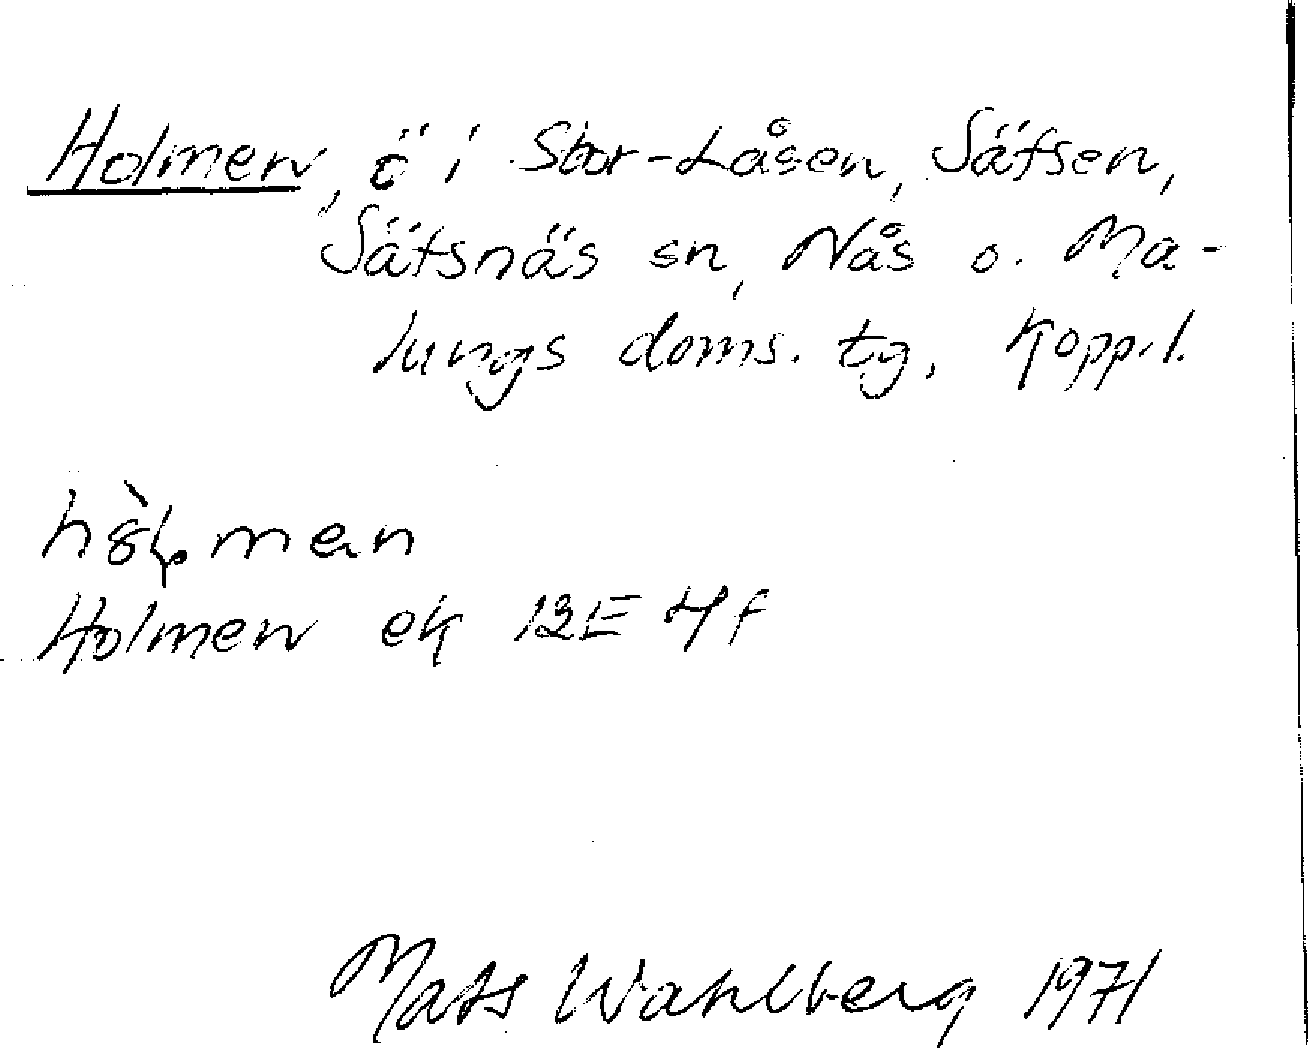 Holmen, ö i Stor-Låsen, Säfsen,
Säfsnäs sn, Nås o. Ma-
lungs doms. tg, Kopp.l.
Holmen ek 12E 4f
Mats Wahlberg 1971